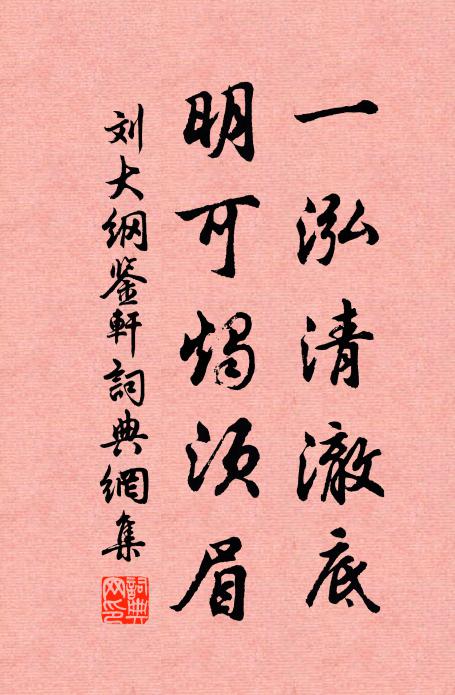 一泓清澈底
明可烛须眉
刘大纲鉴軒詞典網集
詞典
网印